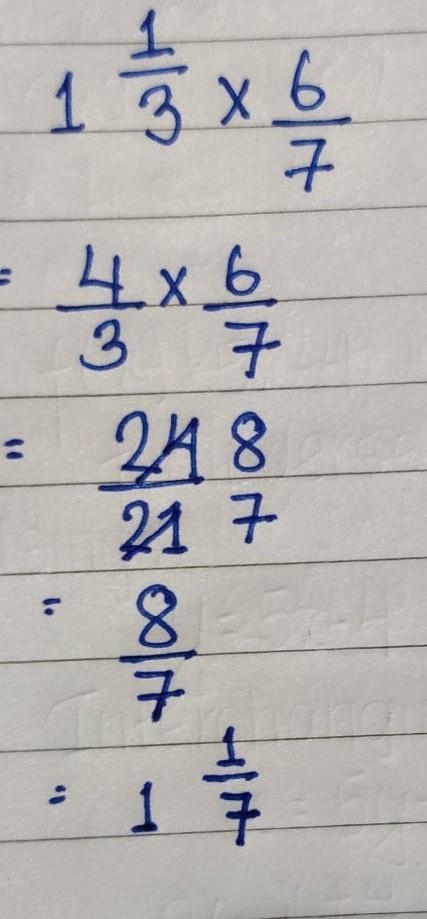 1 1/3 × 6/7
= 4/3 × 6/7
= 24/21 8/7
= 8/7
= 1 1/7